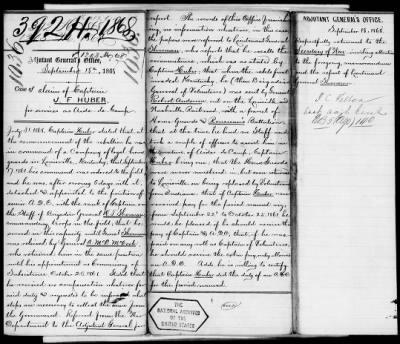 392 H. 1868.
Adjutant General's Office,
September 15th, 1868
Case of claim of Captain
J. F. HUBER.
for services as Aide de Camp.
July 31. 1868. Captain Huber stated that at
the commencement of the rebellion he was
in command of a Company of Loyal home
guards in Louisville, Kentucky, that September
17. 1861 his command was ordered to the field
and he was, after every 6 days with it,
detached & appointed to the territory of
senior A.D.C. with the rank of Captain on
the Staff of Brigadier General W. T. Sherman
commanding Corps in the field, that he
served in this capacity until General Sherman
was relieved by General A. McD. McCook,
who retained him in the same position
until his appointment as Commissary of
Subsistence, October 26. 1861. Stated that
he received no compensation whatever for
said duty & requests to be informed what
steps are necessary to collect the same from
the Government. Referred from the War
Department to the Adjutant General for
report. The records of this Office furnishing
no information whatever, in this case,
the papers were referred to Lieutenant General
Sherman, who reports that he recalls the
circumstances, which are as stated by
Captain Huber; that when the rebel front
invaded Kentucky, he (then Brigadier
General of Volunteers) was sent by General
Robert Anderson out on the Louisville and
Nashville Railroad with a parcel of
Home Guards & Rousseau's Battalion
that at the time he had no Staff and
took a couple of officers to assist him in
the capacity of Aides de Camp, Captain
Huber being one; that the Home Guards
were never mustered in, but were returned
to Louisville on being replaced by Volunteers
from Indiana; that if Captain Huber has
received pay for the period named say
from September 22d to October 26. 1861, he
would be pleased if he should receive the
pay of Captain & A.D.C., that, if he was
paid on any roll as Captain of Volunteers,
he should receive the extra pay only allowed
an A.D.C. Adds, he is willing to certify
that Captain Huber did the duty of an A.D.C.
for the period named.
(Over)
THE
NATIONAL ARCHIVES
OF THE
UNITED STATES
ADJUTANT GENERAL'S OFFICE,
September 15, 1868
Respectfully returned to the
Secretary of War inviting attention
to the foregoing memorandum
and the report of Lieutenant
General Sherman.